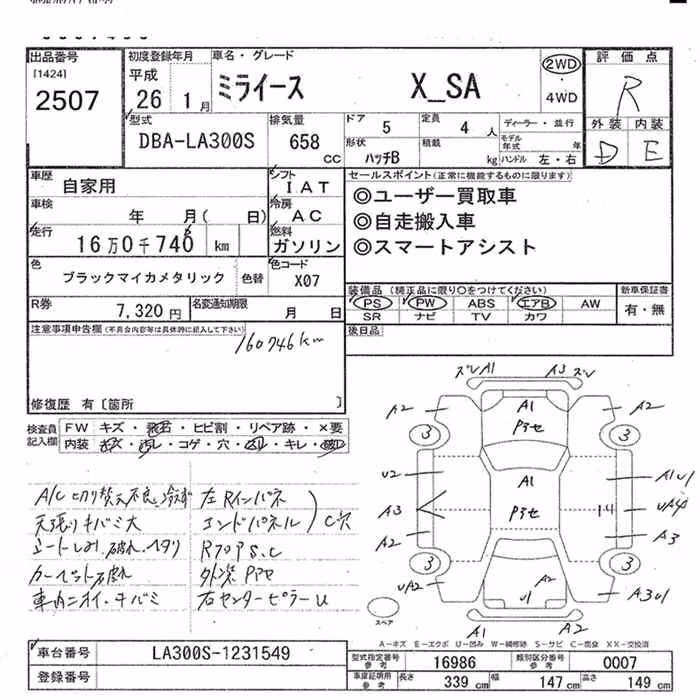 出品番号
[1424]
2507
初度登録年月
平成
26 1月
車名・グレード
ミライース X_SA
2WD
・4WD
評価点
R
外装 内装
D E
型式
DBA-LA300S
排気量
658 cc
ドア 5
定員 4人
ディーラー・並行
形状 ハッチB
積載 kg
モデル年式 年
ハンドル 左・右
車歴
自家用
シフト
IAT
車検
年 月( 日)
冷房
AC
走行
16万0千740 km
燃料
ガソリン
色
ブラックマイカメタリック 色替
色コード
X07
R券
7,320円
名変通知期限
月 日
セールスポイント(正常に機能するものに限ります)
◎ユーザー買取車
◎自走搬入車
◎スマートアシスト
装備品(純正品に限り○をつけてください)
PS PW ABS エアB AW
SR ナビ TV カワ
新車保証書
有・無
後日品
注意事項申告欄(不具合内容等は具体的に記入して下さい)
160746km
修復歴 有〔箇所 〕
検査員記入欄
FW キズ・飛石・ヒビ割・リペア跡・×要
内装 キズ・汚レ・コゲ・穴・凹レ・キレ・破レ
A/C 切り替え不良、冷えず
天張りキバミ大
シートしみ、破れ、ヘタリ
カーペット破れ
車内ニオイ・キバミ
左Rインパネ
エンドパネル
C穴
R70P S.C
外装Pアセ
右センターピラーU
ズレ A1 A3 ズレ
A2 A1 A2
Pアセ
3 3
U2 A1 A1U1
A3 Pアセ 14 UA4
A2 A3
3 3
UA2 A2 A3U1
U1
A1 A2
スペア
A-キズ E-エクボ U-凹み W-補修跡 S-サビ C-腐食 XX-交換済
車台番号
LA300S-1231549
登録番号
型式指定番号 参考 16986
類別区分番号 参考 0007
車庫証明用 参考 長さ 339 cm 幅 147 cm 高さ 149 cm